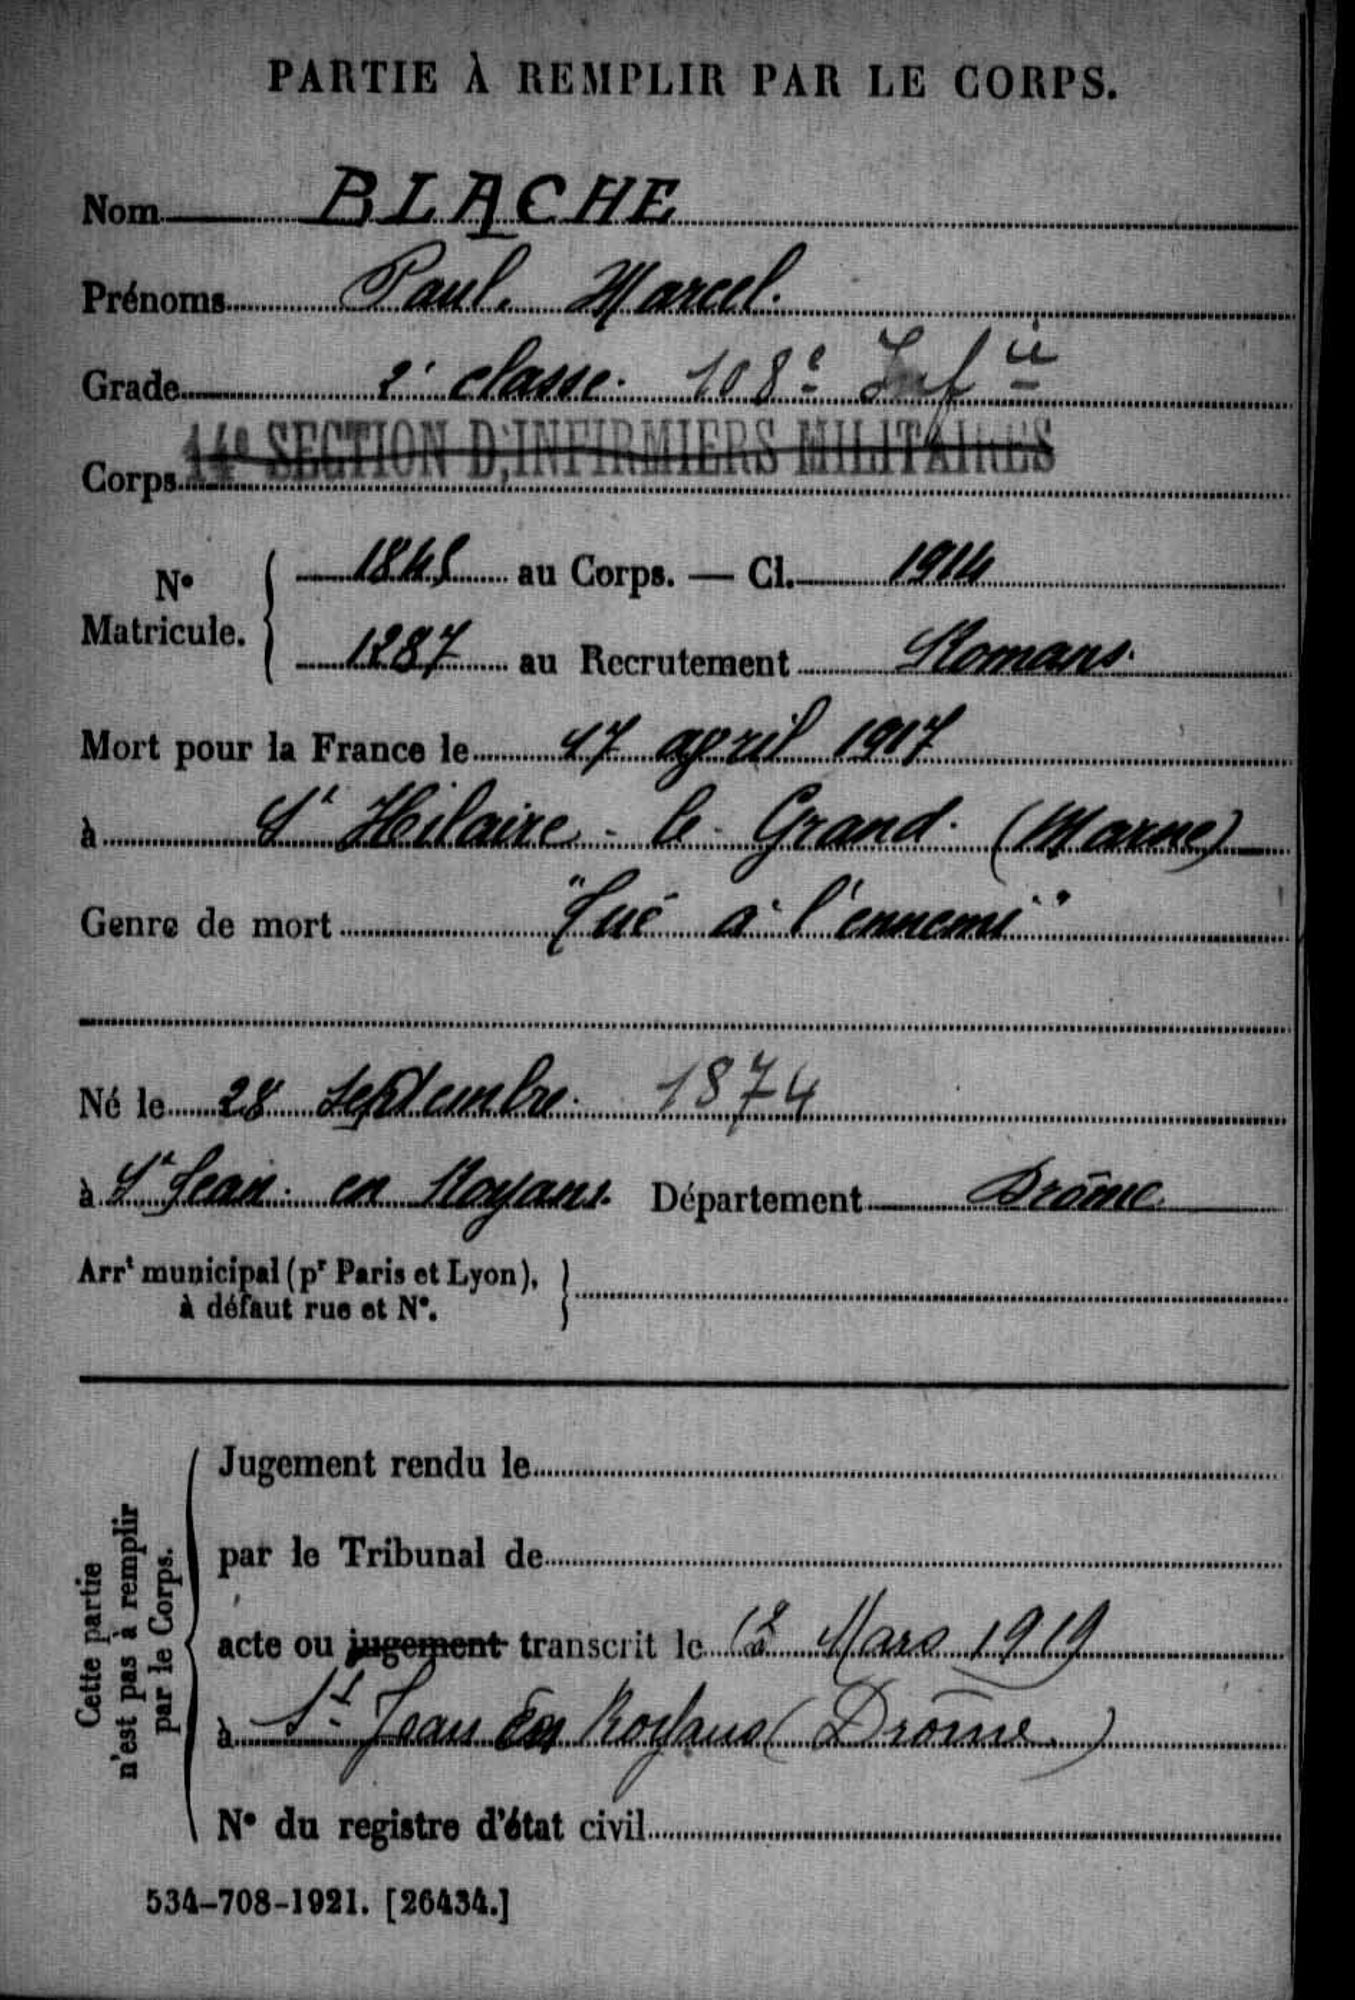 PARTIE À REMPLIR PAR LE CORPS.
Nom BLACHE
Prénoms Paul. Marcel.
Grade 2e classe. 108e Infie
Corps 14e SECTION D'INFIRMIERS MILITAIRES
No Matricule. { 1845 au Corps. — Cl. 1914
1287 au Recrutement Romans.
Mort pour la France le 17 april 1917
à St Hilaire - le - Grand. (Marne)
Genre de mort "Tué à l'ennemi"
Né le 28 Septembre. 1874
à St Jean. en Royans. Département Drôme
Arrt municipal (pr Paris et Lyon),
à défaut rue et No.
Cette partie
n'est pas à remplir
par le Corps.
Jugement rendu le
par le Tribunal de
acte ou jugement transcrit le Mars 1919
à St Jean En Royans (Drôme)
No du registre d'état civil
534-708-1921. [26434.]